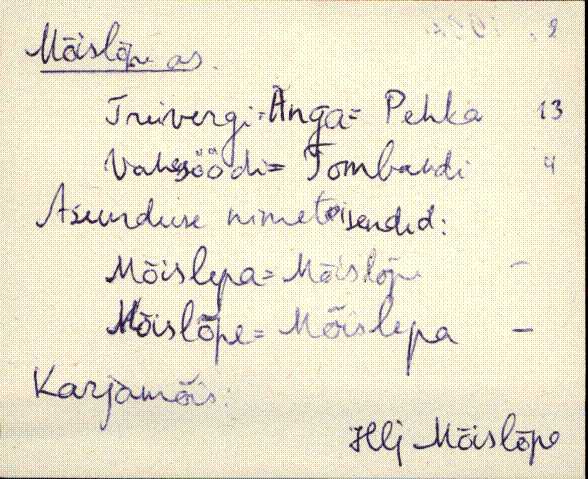 Mõislõpe as.
Treivergi = Anga = Pehka 13
Vahesöödi = Tombandi 4
Asunduse nimeteisendid:
Mõislepa = Mõislõpe –
Mõislõpe = Mõislepa –
Karjamõis:
Hlj Mõislõpe